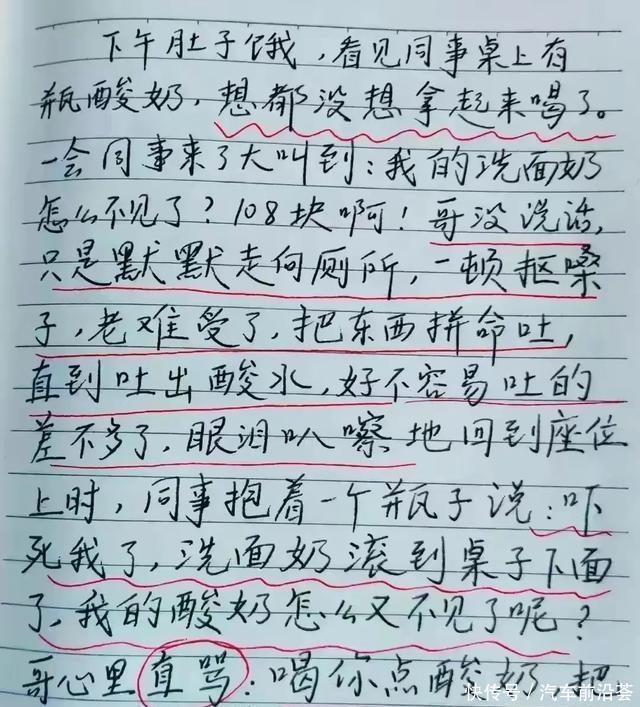 下午肚子饿，看见同事桌上有
瓶酸奶，想都没想拿起来喝了。
一会同事来了大叫到：我的洗面奶
怎么不见了？108块啊！哥没说话，
只是默默走向厕所，一顿抠嗓
子，老难受了，把东西拼命吐，
直到吐出酸水，好不容易吐的
差不多了，眼泪叭嚓地回到座位
上时，同事抱着一个瓶子说：吓
死我了，洗面奶滚到桌子下面
了，我的酸奶怎么又不见了呢？
哥心里直骂：喝你点酸奶，把
快传号／汽车前沿荟